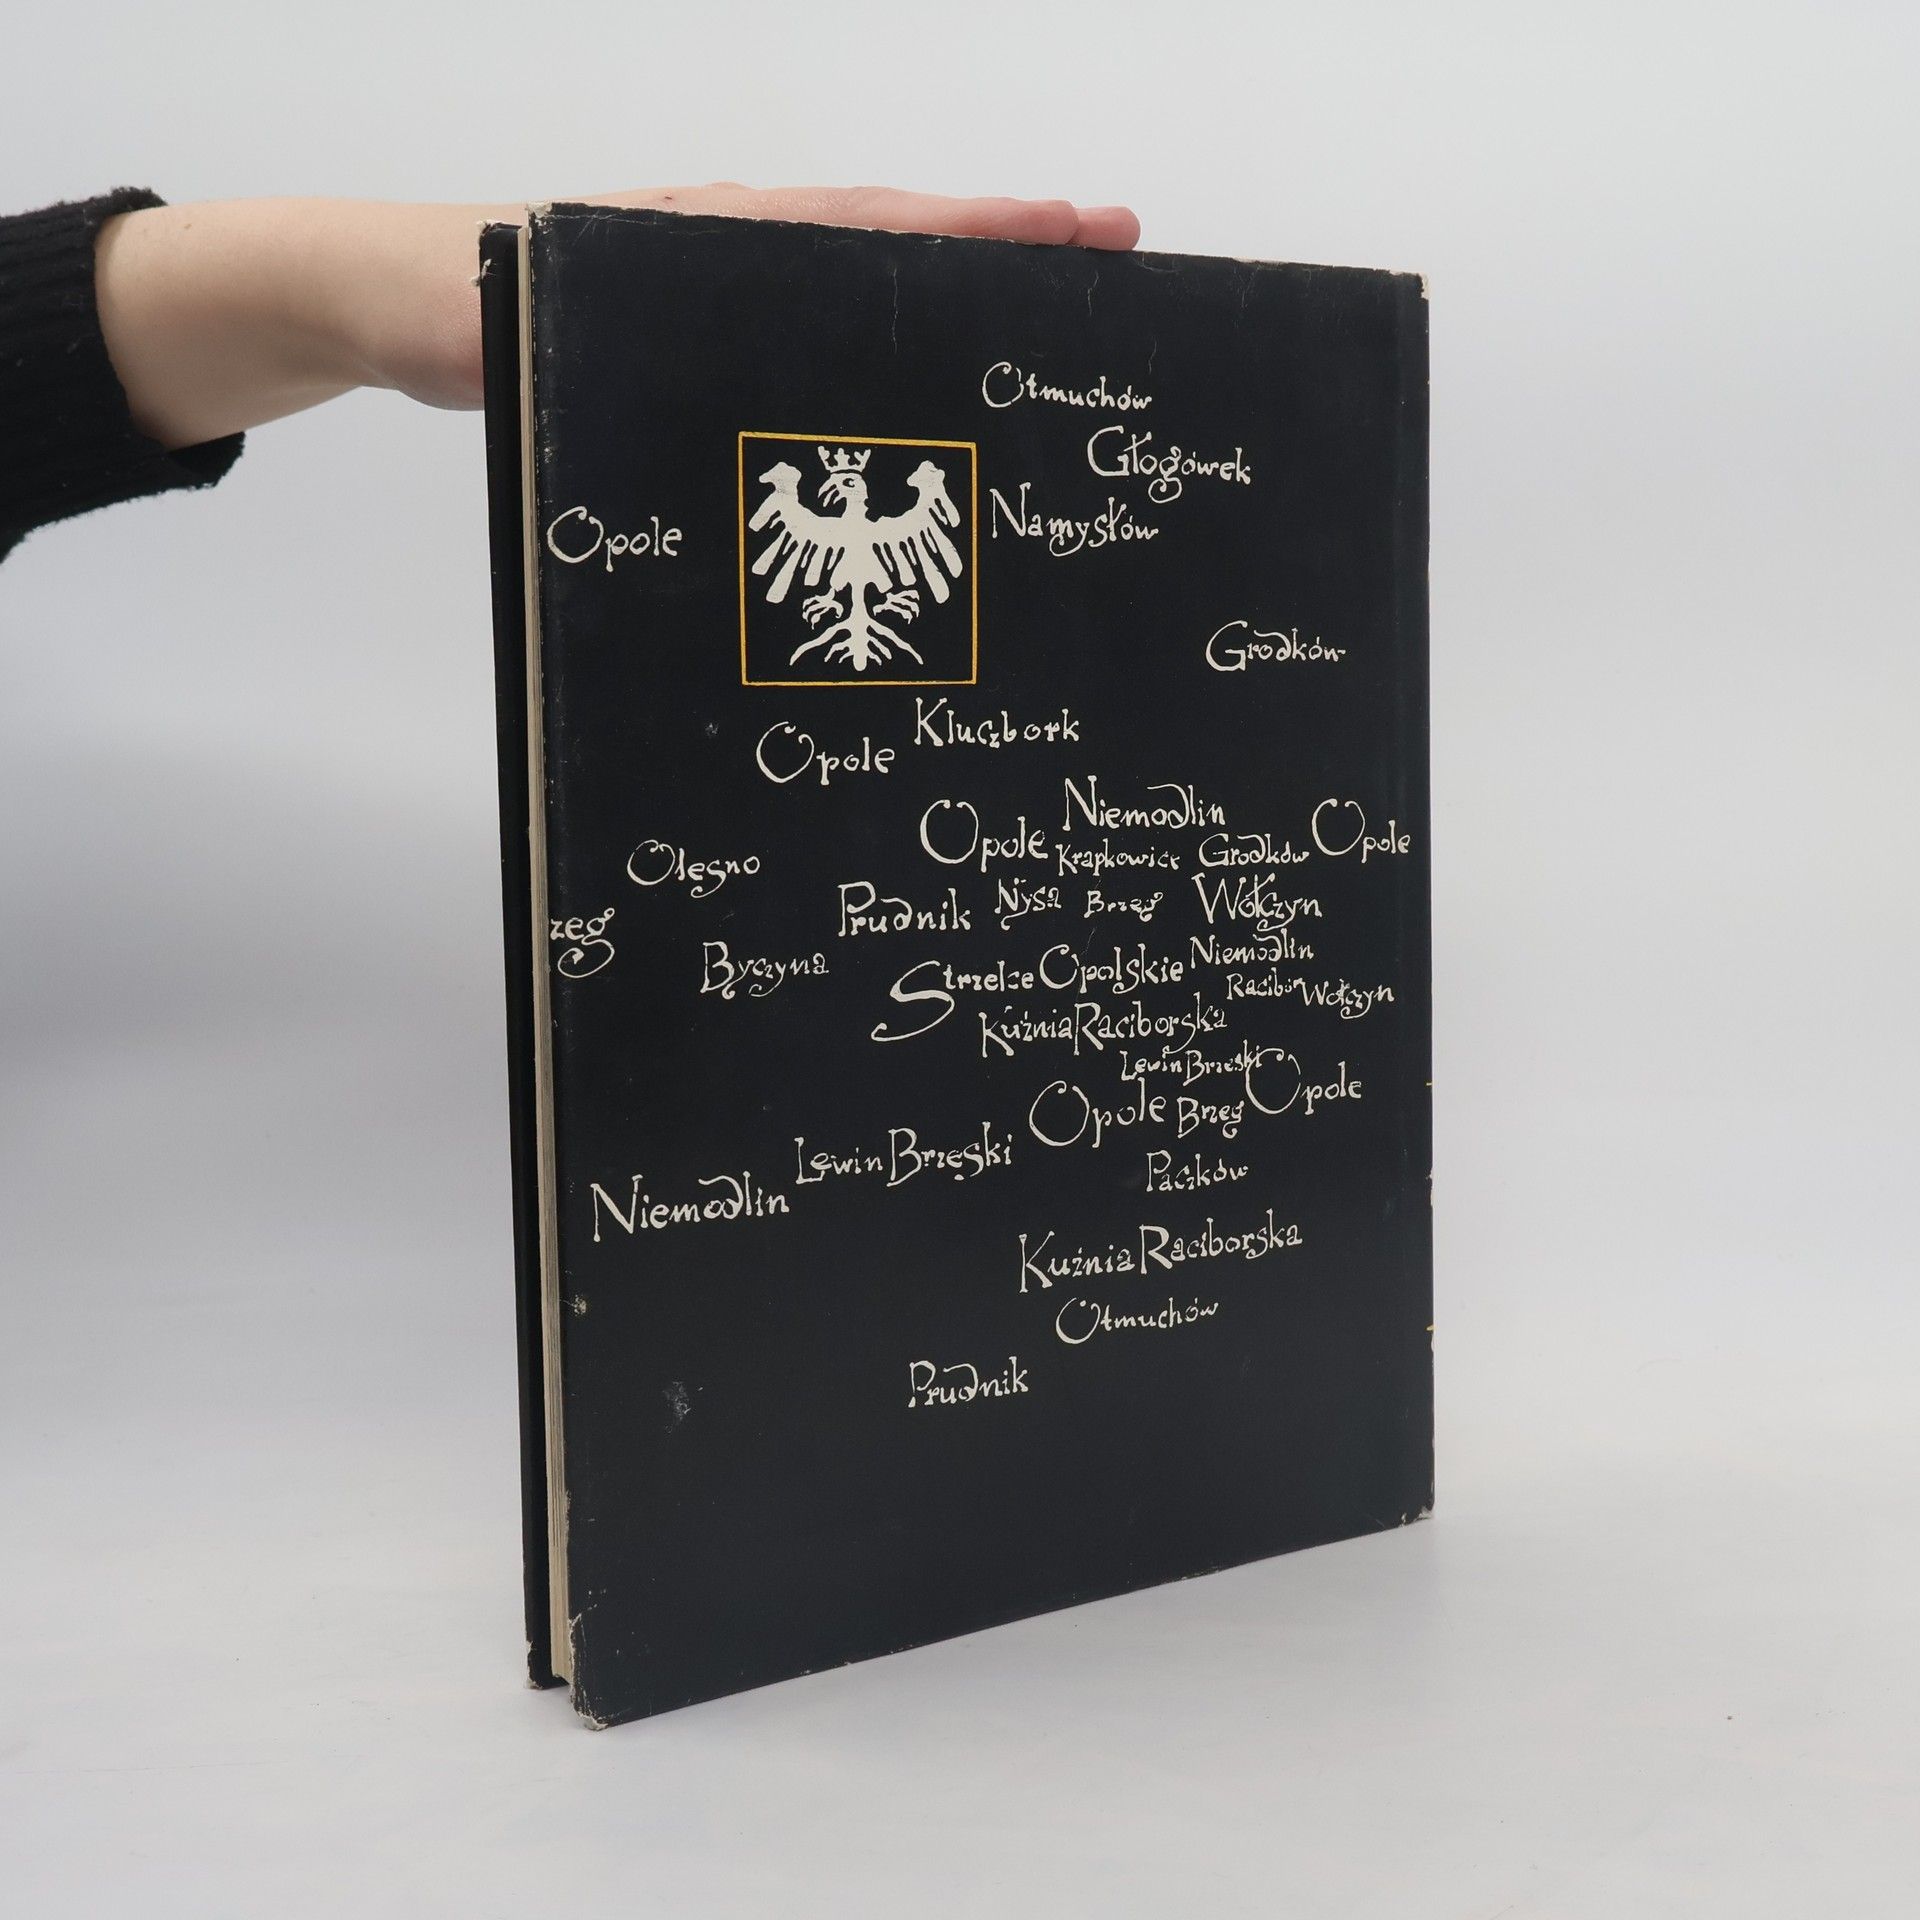 Otmuchów
Głogówek
Opole
Namysłów
Grodków
Opole Kluczbork
Niemodlin
Opole Krapkowice Grodków Opole
Olesno
Prudnik Nysa Brzeg Wołczyn
zeg
Byczyna
Strzelce Opolskie Niemodlin
Racibór Wołczyn
Kuźnia Raciborska
Lewin Brzeski
Opole Brzeg Opole
Lewin Brzeski
Paczków
Niemodlin
Kuźnia Raciborska
Otmuchów
Prudnik